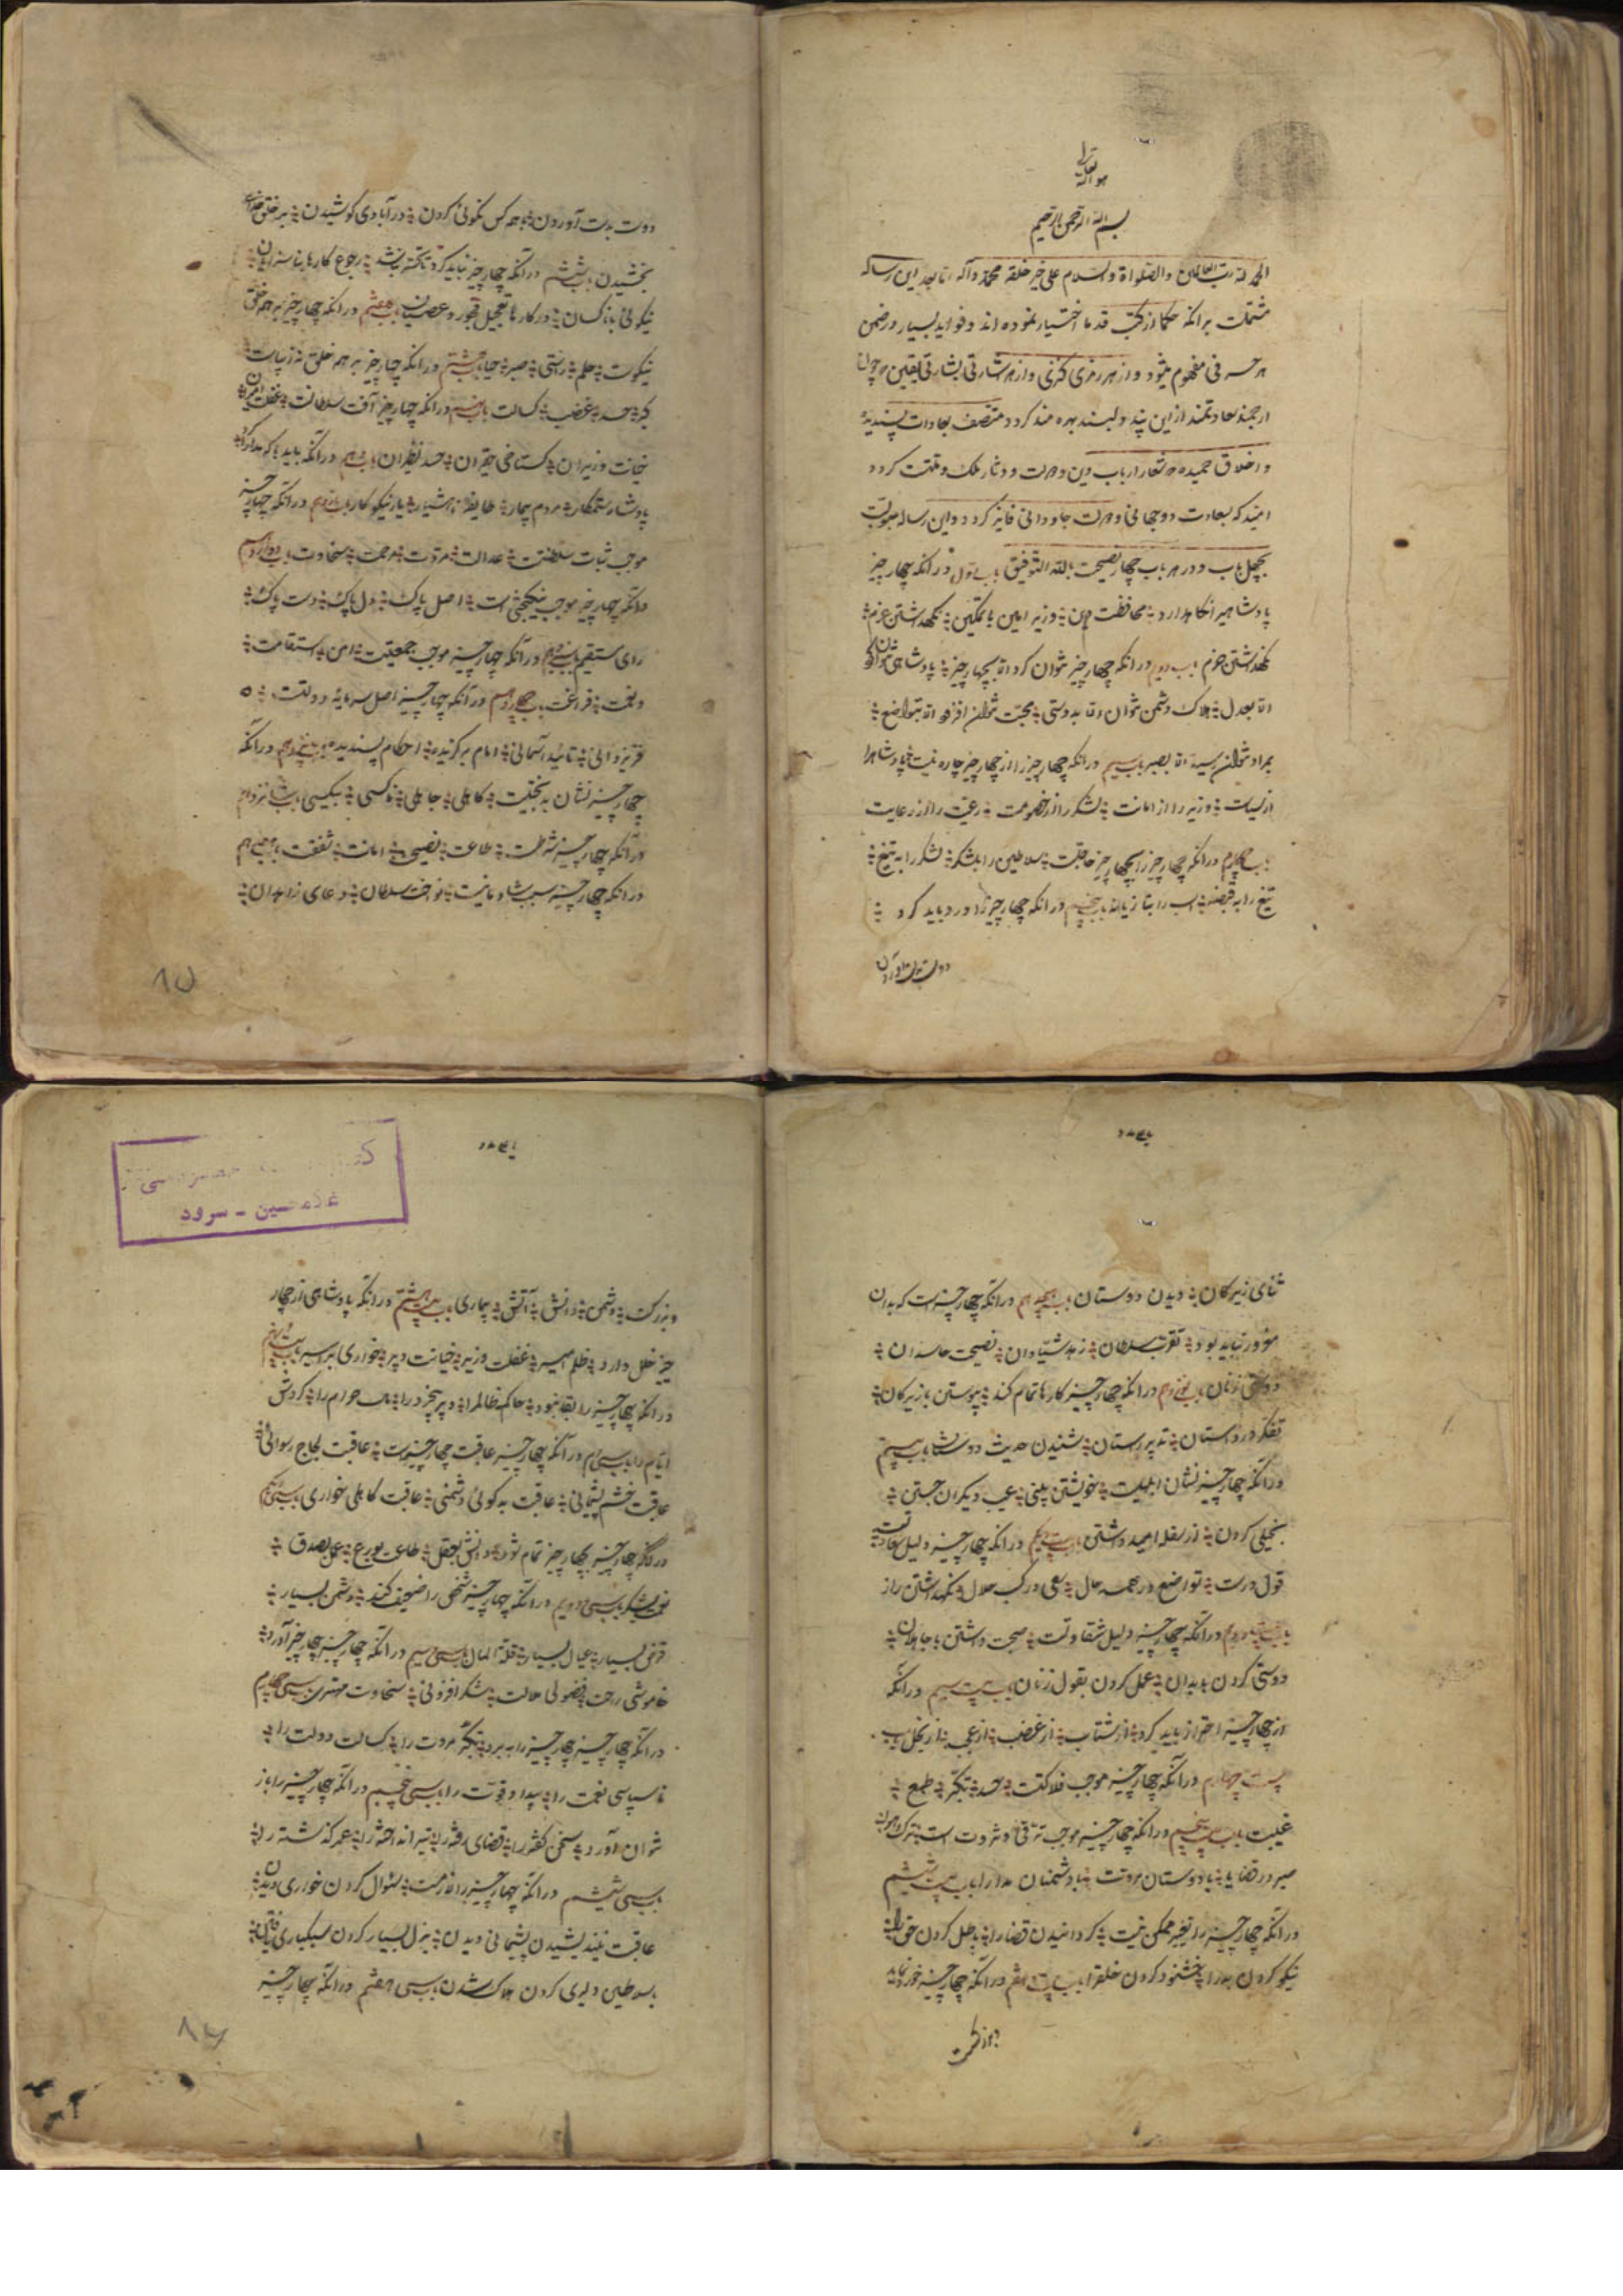 هو الله تعالی
بسم الله الرحمن الرحیم
الحمد لله رب العالمین والصلواة والسلام علی خیر خلقه محمد وآله اما بعد این رساله
مشتملست بر آنکه حکما از کتب قدما اختیار نموده اند و فواید بسیار در ضمن
هر حرفی مفهوم میشود و از هر رمزی کنزی و از هر اشارتی بشارتی یقین که چون
ارجمند سعادتمند از این پند دلبند بهره مند کردد متصف بعادات پسندیده
و اخلاق حمیده که شعار ارباب دین و دولت و دثار ملک و ملتست کردد
امید که بسعادت دو جهانی و دولت جاودانی فایز کردد و این رساله مبوبست
بچهل باب و در هر باب چهار نصیحت بالله التوفیق باب اول در آنکه چهار چیز
پادشاهی را نکاهدارد محافظت دین وزیر امین با تمکین نکهداشتن عزم
نکهداشتن حزم باب دویم در آنکه چهار چیز نتوان کرد الا بچهار چیز پادشاهی نتوان کرد
الا بعدل هلاک دشمن نتوان الا بدوستی محبت نتوان افزود الا بتواضع
بمراد نتوان رسید الا بصبر باب سیم در آنکه چهار چیز را از چهار چیز چاره نیست پادشاه را
از سیاست وزیر را از امانت لشکر را از خصومت رعیت را از رعایت
باب چهارم در آنکه چهار چیز را بچهار چیز حاجتست سلاطین را بلشکر لشکر را به تیغ
تیغ را به قبضه اسب را بتازیانه باب پنجم در آنکه چهار چیز را ورد باید کرد
دوست بدست آوردن
دوست بدست آوردن با همه کس نکوئی کردن در آبادی کوشیدن بر خلق خدا
بخشیدن باب ششم در آنکه چهار چیز نباید کرد تا کشته نشد رجوع کارها بناسزایان
نیکوئی با ناکسان در کارها تعجیل فجور و عصیان باب هفتم در آنکه چهار چیز بر همه خلق
نیکوست حلم راستی صبر حیا باب هشتم در آنکه چهار چیز بر همه خلق نه زیباست
کبر حسد غضب کسالت باب نهم در آنکه چهار چیز آفت سلطانست غفلت امیران
خیانت وزیران کستاخی حقیران حسد نظیران باب دهم در آنکه باید
پادشاه ستمکار مردم بیمار هشیار یار نیکوکار باب یازدهم در آنکه چهار چیز
موجب ثبات سلطنتست عدالت مروت مرحمت سخاوت باب دوازدهم
در آنکه چهار چیز موجب نیکبختی است اصل پاک دل پاک دست پاک
رای مستقیم باب سیزدهم در آنکه چهار چیز موجب جمعیتست امن استقامت
و نعمت فراغت باب چهاردهم در آنکه چهار چیز اصل سرمایه دولتست
فر یزدانی تائید آسمانی امام برکزیده احکام پسندیده باب پانزدهم در آنکه
چهار چیز نشان بدبختیست کاهلی جاهلی ناکسی بیکسی باب شانزدهم
در آنکه چهار چیز شرطست طاعت نصیحت امانت شفقت باب هفدهم
در آنکه چهار چیز سبب شادمانیست نواخت سلطان دعای زاهدان
۸۵
ثنای زیرکان دیدن دوستان باب هیجدهم در آنکه چهار چیز است که بدان
مغرور نباید بود تقرب سلطان زهد شیادان نصیحت حاسدان
دوستی زنان باب نوزدهم در آنکه چهار چیز کارها تمام کند پیوستن با زیرکان
تفکر در دانستن تدبیر راستان شنیدن حدیث دوستان باب بیستم
در آنکه چهار چیز نشان ابلهیست خویشتن بینی عیب دیکران جستن
بخیلی کردن از سفله امید داشتن باب بیست و یکم در آنکه چهار چیز دلیل سعادتست
قول درست تواضع در همه حال سعی در کسب حلال نکهداشتن راز
باب بیست و دویم در آنکه چهار چیز دلیل شقاوتست صحبت داشتن با جاهلان
دوستی کردن با بدان عمل کردن بقول زنان باب بیست سیم در آنکه
از چهار چیز احتراز باید کرد از شتاب از غضب از عجب از بخل باب
بیست چهارم در آنکه چهار چیز موجب فلاکتست حسد تکبر طمع
غیبت باب بیست پنجم در آنکه چهار چیز موجب ترقی و ثروت است ترک هوا
صبر در قضایا با دوستان مروت با دشمنان مدارا باب بیست ششم
در آنکه چهار چیز را تغییر ممکن نیست کردانیدن قضا را باطل کردن حق را
نیکو کردن بد را خشنود کردن خلق را باب بیست هفتم در آنکه چهار چیز خورد نماید
و بزرکست
و بزرکست دشمن دانش آتش بیماری باب بیست هشتم در آنکه پادشاهی از چهار
چیز خلل دارد ظلم امیر غفلت وزیر خیانت دبیر خواری بر اسیر باب بیست نهم
در آنکه چهار چیز را بقا نبود حاکم ظالم را پیر بیخرد را مال حرام را کردش
ایام را باب سی ام در آنکه چهار چیز عاقبت چهار چیز است عاقبت لجاج رسوائی
عاقبت خشم پشیمانی عاقبت بدکوئی دشمنی عاقبت کاهلی خواری باب سی و یکم
در آنکه چهار چیز بچهار چیز تمام شود دانش بعقل طاعت بورع عمل بصدق
نعمت بشکر باب سی و دویم در آنکه چهار چیز شخص را ضعیف کند دشمن بسیار
قرض بسیار عیال بسیار قلة المال باب سی سیم در آنکه چهار چیز چهار چیز آورد
خاموشی راحت فضولی ملالت شکر افزونی سخاوت مهتری باب سی چهارم
در آنکه چهار چیز چهار چیز را ببرد تکبر مروت را کسالت دولت را
ناسپاسی نعمت را بیداد قوت را باب سی پنجم در آنکه چهار چیز را باز
نتوان آورد سخن کفته را قضای رفته را تیر انداخته را عمر کذشته را
باب سی ششم در آنکه چهار چیز را لازمست سئوال کردن خواری دیدن
عاقبت نیندیشیدن پشیمانی دیدن هزل بسیار کردن سبکساری
بسلاطین دلیری کردن هلاک شدن باب سی هفتم در آنکه چهار چیز
۸۶
غلامحسین - سرود